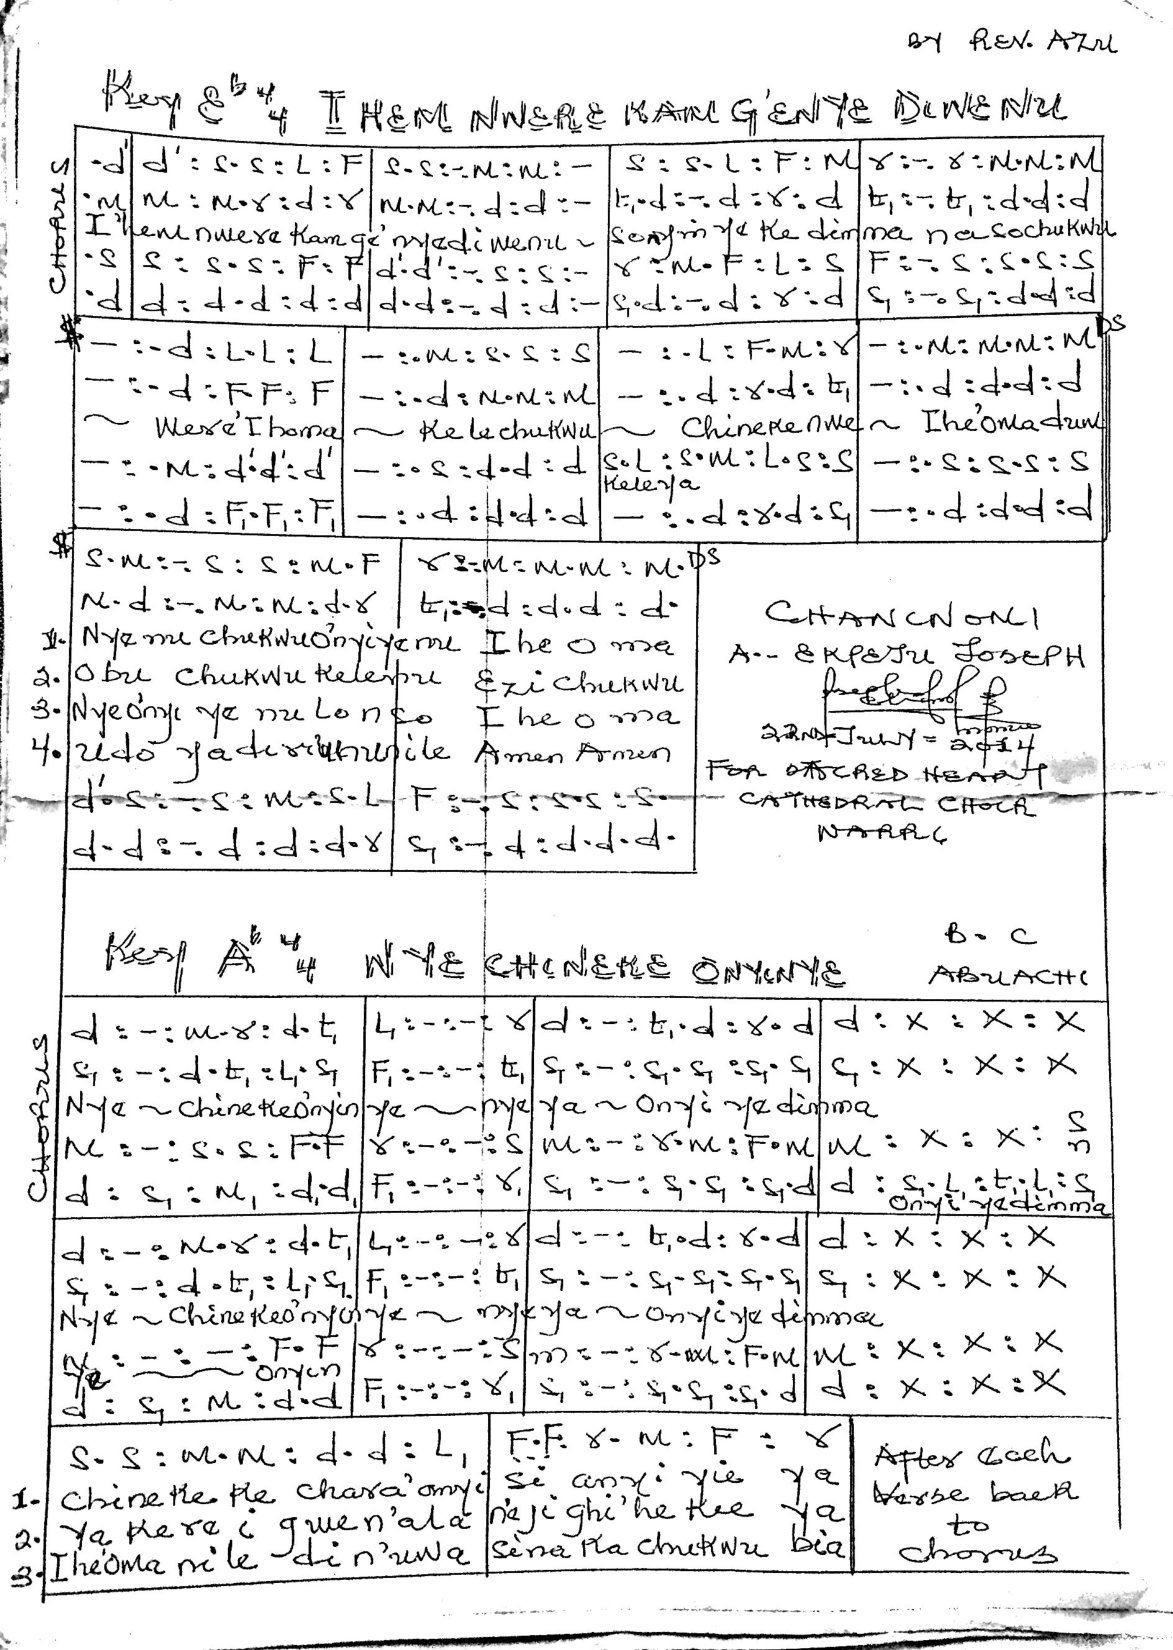 BY REV. AZU
Key E♭ 4/4 IHEM NWERE KAM G'ENYE DIWENU
CHORUS
.d' | d' : s.s : L : F | s.s :-.M : M : - | s : s.L : F : M | r :-. r : M.M : M
.M | M : M.r : d : r | M.M :-. d : d : - | t₁.d :-. d : r . d | t₁ :-. t₁ : d.d : d
I'hem nwere kam ge'nyediwenu ~ Sonyinye ke dimma na sochukwu
.s | s : s.s : F : F | d'.d' :-. s : s :- | r : M.F : L : s | F :-. s : s.s : s
.d | d : d.d : d : d | d.d :-. d : d :- | s₁.d :-. d : r : d | s₁ :-. s₁ : d.d : d
DS
- :.d : L.L : L | - :.M : s.s : s | - :.L : F.M : r | - :.M : M.M : M
- :.d : F.F : F | - :.d : M.M : M | - :.d : r.d : t₁ | - :.d : d.d : d
~ Were'Ihoma ~ Kelechukwu ~ Chinekenwe ~ Ihe'Omadum
- :.M : d'.d' : d' | - :.s : d.d : d | s.L : s.M : L.s : s | - :.s : s.s : s
Keleya
- :.d : F₁.F₁ : F₁ | - :.d : d.d : d | - :.d : r.d : s₁ | - :.d : d.d : d
DS
s.M :-. s : s : M.F | r :-.M : M.M : M.
M.d :-. M : M : d.r | t₁ :-.d : d.d : d.
1. Nyemu chukwuO'nyiyemu Ihe o ma
2. Obu chukwu kelenu Ezi chukwu
3. Nyeonyi ye nu Lonso Ihe o ma
4. udo yadiri unu nile Amen Amen
d'.s :-. s : M : s.L | F :-. s : s.s : s.
d.d :-. d : d : d.r | s₁ :-. d : d.d.d.
A.. EKPEJU JOSEPH
22ND JULY = 2014
FOR SACRED HEART
CATHEDRAL CHOIR
WARRI
Key A♭ 4/4 NYE CHINEKE ONYINYE
B. C
ABUACHI
CHORUS
d : - : M.r : d.t₁ | L₁ : - : - : r | d : - : t₁.d : r.d | d : x : x : x
s₁ : - : d.t₁ : L₁.s₁ | F₁ : - : - : t₁ | s₁ : - : s₁.s₁ : s₁.s₁ | s₁ : x : x : x
Nye ~ ChinekeO'nyinye ~ nye ya ~ Onyi yedimma
M : - : s.s : F.F | r : - : - : s | M : - : r.M : F.M | M : x : x : s n
d : s₁ : M₁ : d₁.d₁ | F₁ : - : - : r₁ | s₁ : - : s₁.s₁ : s₁.d | d : s₁.L₁ : t₁.L₁ : s₁
Onyi yedimma
d : - : M.r : d.t₁ | L₁ : - : - : r | d : - : t₁.d : r.d | d : x : x : x
s₁ : - : d.t₁ : L₁.s₁ | F₁ : - : - : t₁ | s₁ : - : s₁.s₁ : s₁.s₁ | s₁ : x : x : x
Nye ~ ChinekeO'nyinye ~ nye ya ~ Onyiyedimma
M : - : - : F.F | r : - : - : s | m : - : r.M : F.M | M : x : x : x
Ye ~ Onyin
d : s₁ : M : d.d | F₁ : - : - : r₁ | s₁ : - : s₁.s₁ : s₁.d | d : x : x : x
s.s : M.M : d.d : L₁ | F.F. r.M : F : r
1. Chineke ke chara'anyi si anyi yie ya
2. Ya kere i gwe n'ala neji ghi'he kee ya
3. IheOma nile di n'uwa sina ka chukwu bia
After Each
Verse back
to
chorus